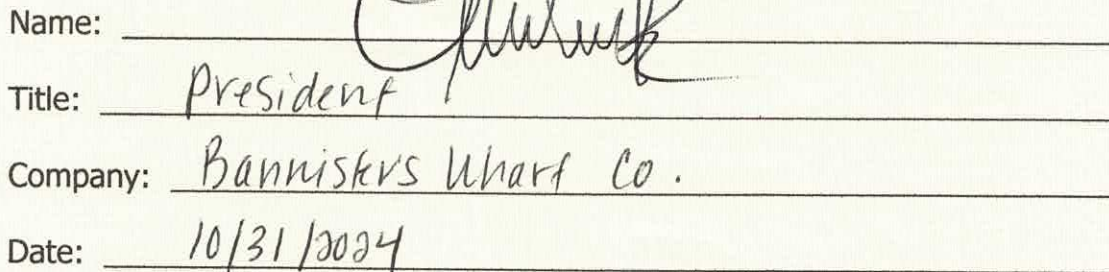 Name:
Title: President
Company: Bannisters Wharf Co.
Date: 10/31/2024